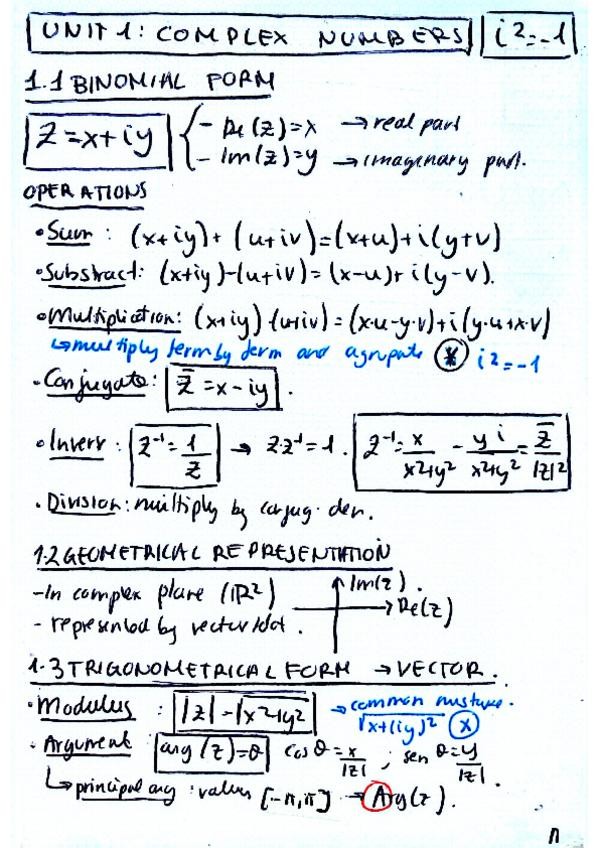 UNIT 1: COMPLEX NUMBERS i²=-1
1.1 BINOMIAL FORM
Z=x+iy
- Re(z)=x → real part
- Im(z)=y → imaginary part.
OPERATIONS
• Sum: (x+iy)+(u+iv)=(x+u)+i(y+v)
• Substract: (x+iy)-(u+iv)=(x-u)+i(y-v).
• Multiplication: (x+iy)·(u+iv)=(x·u-y·v)+i(y·u+x·v)
↳ multiply term by term and agrupate * i²=-1
• Conjugate: z̅=x-iy.
• Invers: z⁻¹=1/z → z·z⁻¹=1. z⁻¹=x/x²+y² - yi/x²+y²=z̅/|z|²
• Division: multiply by conjug. den.
1.2 GEOMETRICAL REPRESENTATION
- In complex plane (ℝ²) Im(z).
- represented by vector/dot. Re(z)
1.3 TRIGONOMETRICAL FORM → VECTOR.
• Modulus: |z|=√x²+y² → common mistake.
√x+(iy)² x
• Argument: arg(z)=θ cosθ=x/|z|; senθ=y/|z|.
↳ principal arg: values [-π,π] → Arg(z).